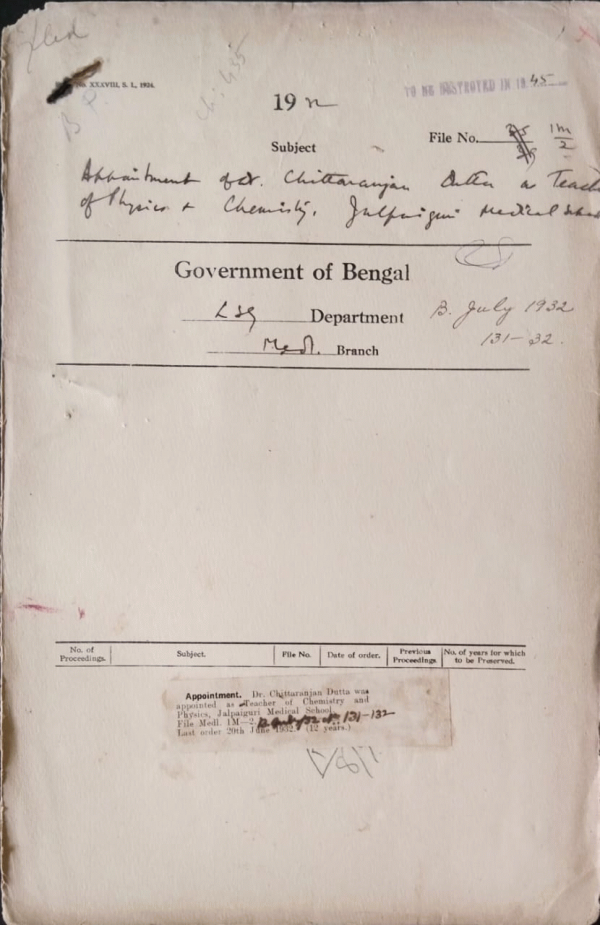 filed
XXXVIII, S. I., 1924.
TO BE DESTROYED IN 1945
19
File No. 1M/2
Subject
Appointment of Dr. Chittaranjan Dutta as Teach
of Physics & Chemistry, Jalpaiguri Medical School
Government of Bengal
LSG Department B. July 1932
131-32.
Medl. Branch
No. of Proceedings. Subject. File No. Date of order. Previous Proceedings No. of years for which to be Preserved.
Appointment. Dr. Chittaranjan Dutta was
appointed as Teacher of Chemistry and
Physics, Jalpaiguri Medical School.
File Medl. 1M-2 131-132
Last order 20th June 1932. (12 years.)